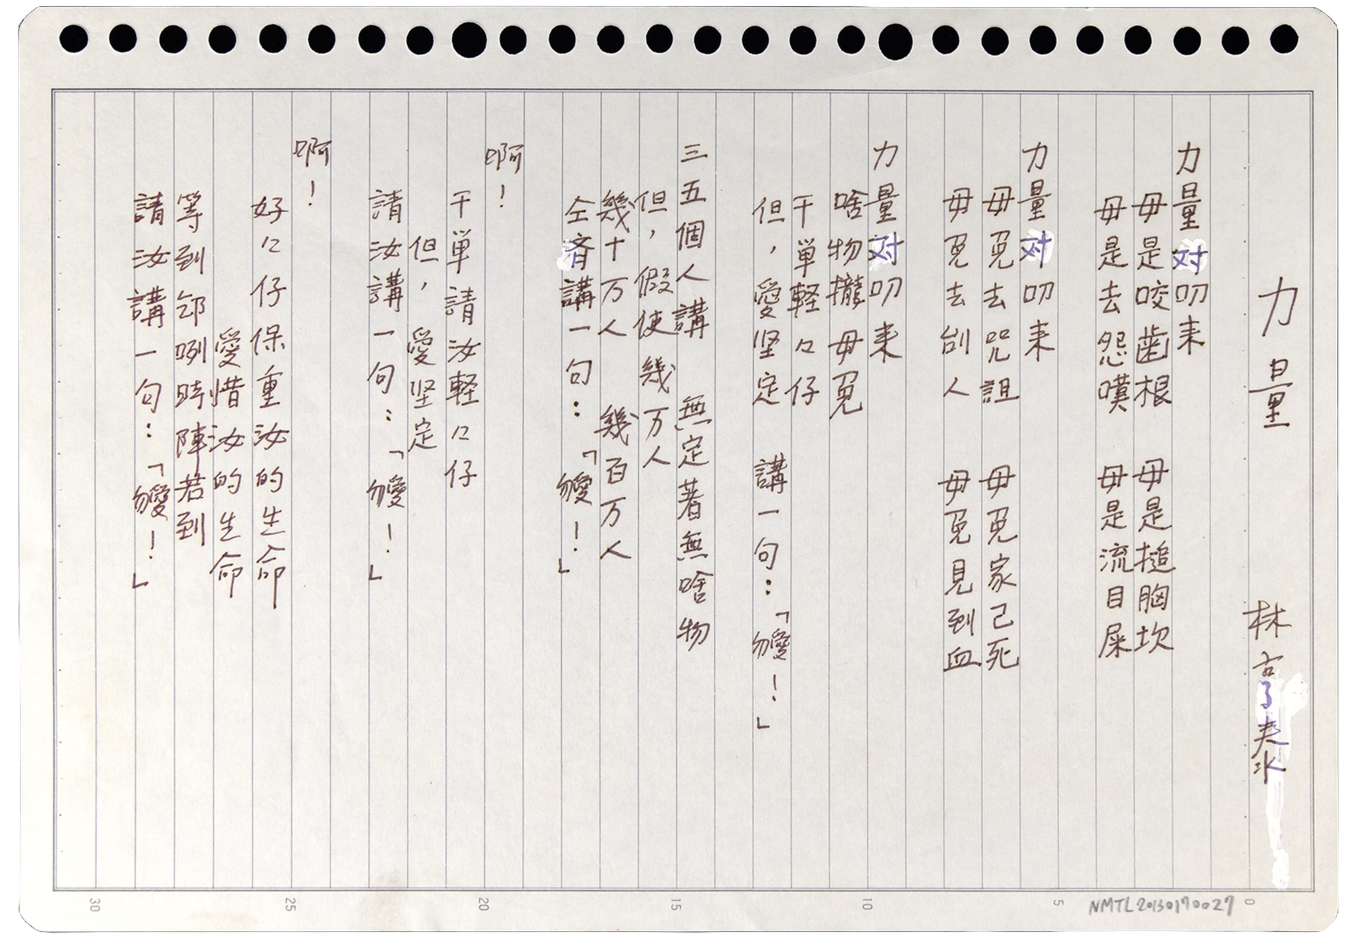 力量 林亨泰
力量対叨来
毋是咬齒根 毋是搥胸坎
毋是去怨嘆 毋是流目屎
力量対叨来
毋免去咒詛 毋免家己死
毋免去刣人 毋免見到血
力量対叨来
啥物攏毋免
干単軽々仔
但，愛坚定 講一句：「勿愛！」
三五個人講 無定著無啥物
但，假使幾万人
幾十万人 幾百万人
仝斉講一句：「勿愛！」
啊！
干単請汝軽々仔
但，愛坚定
請汝講一句：「勿愛！」
啊！
好々仔保重汝的生命
愛惜汝的生命
等到咧時陣若到
請汝講一句：「勿愛！」
30 25 20 15 10 5 0
NMTL20130190027